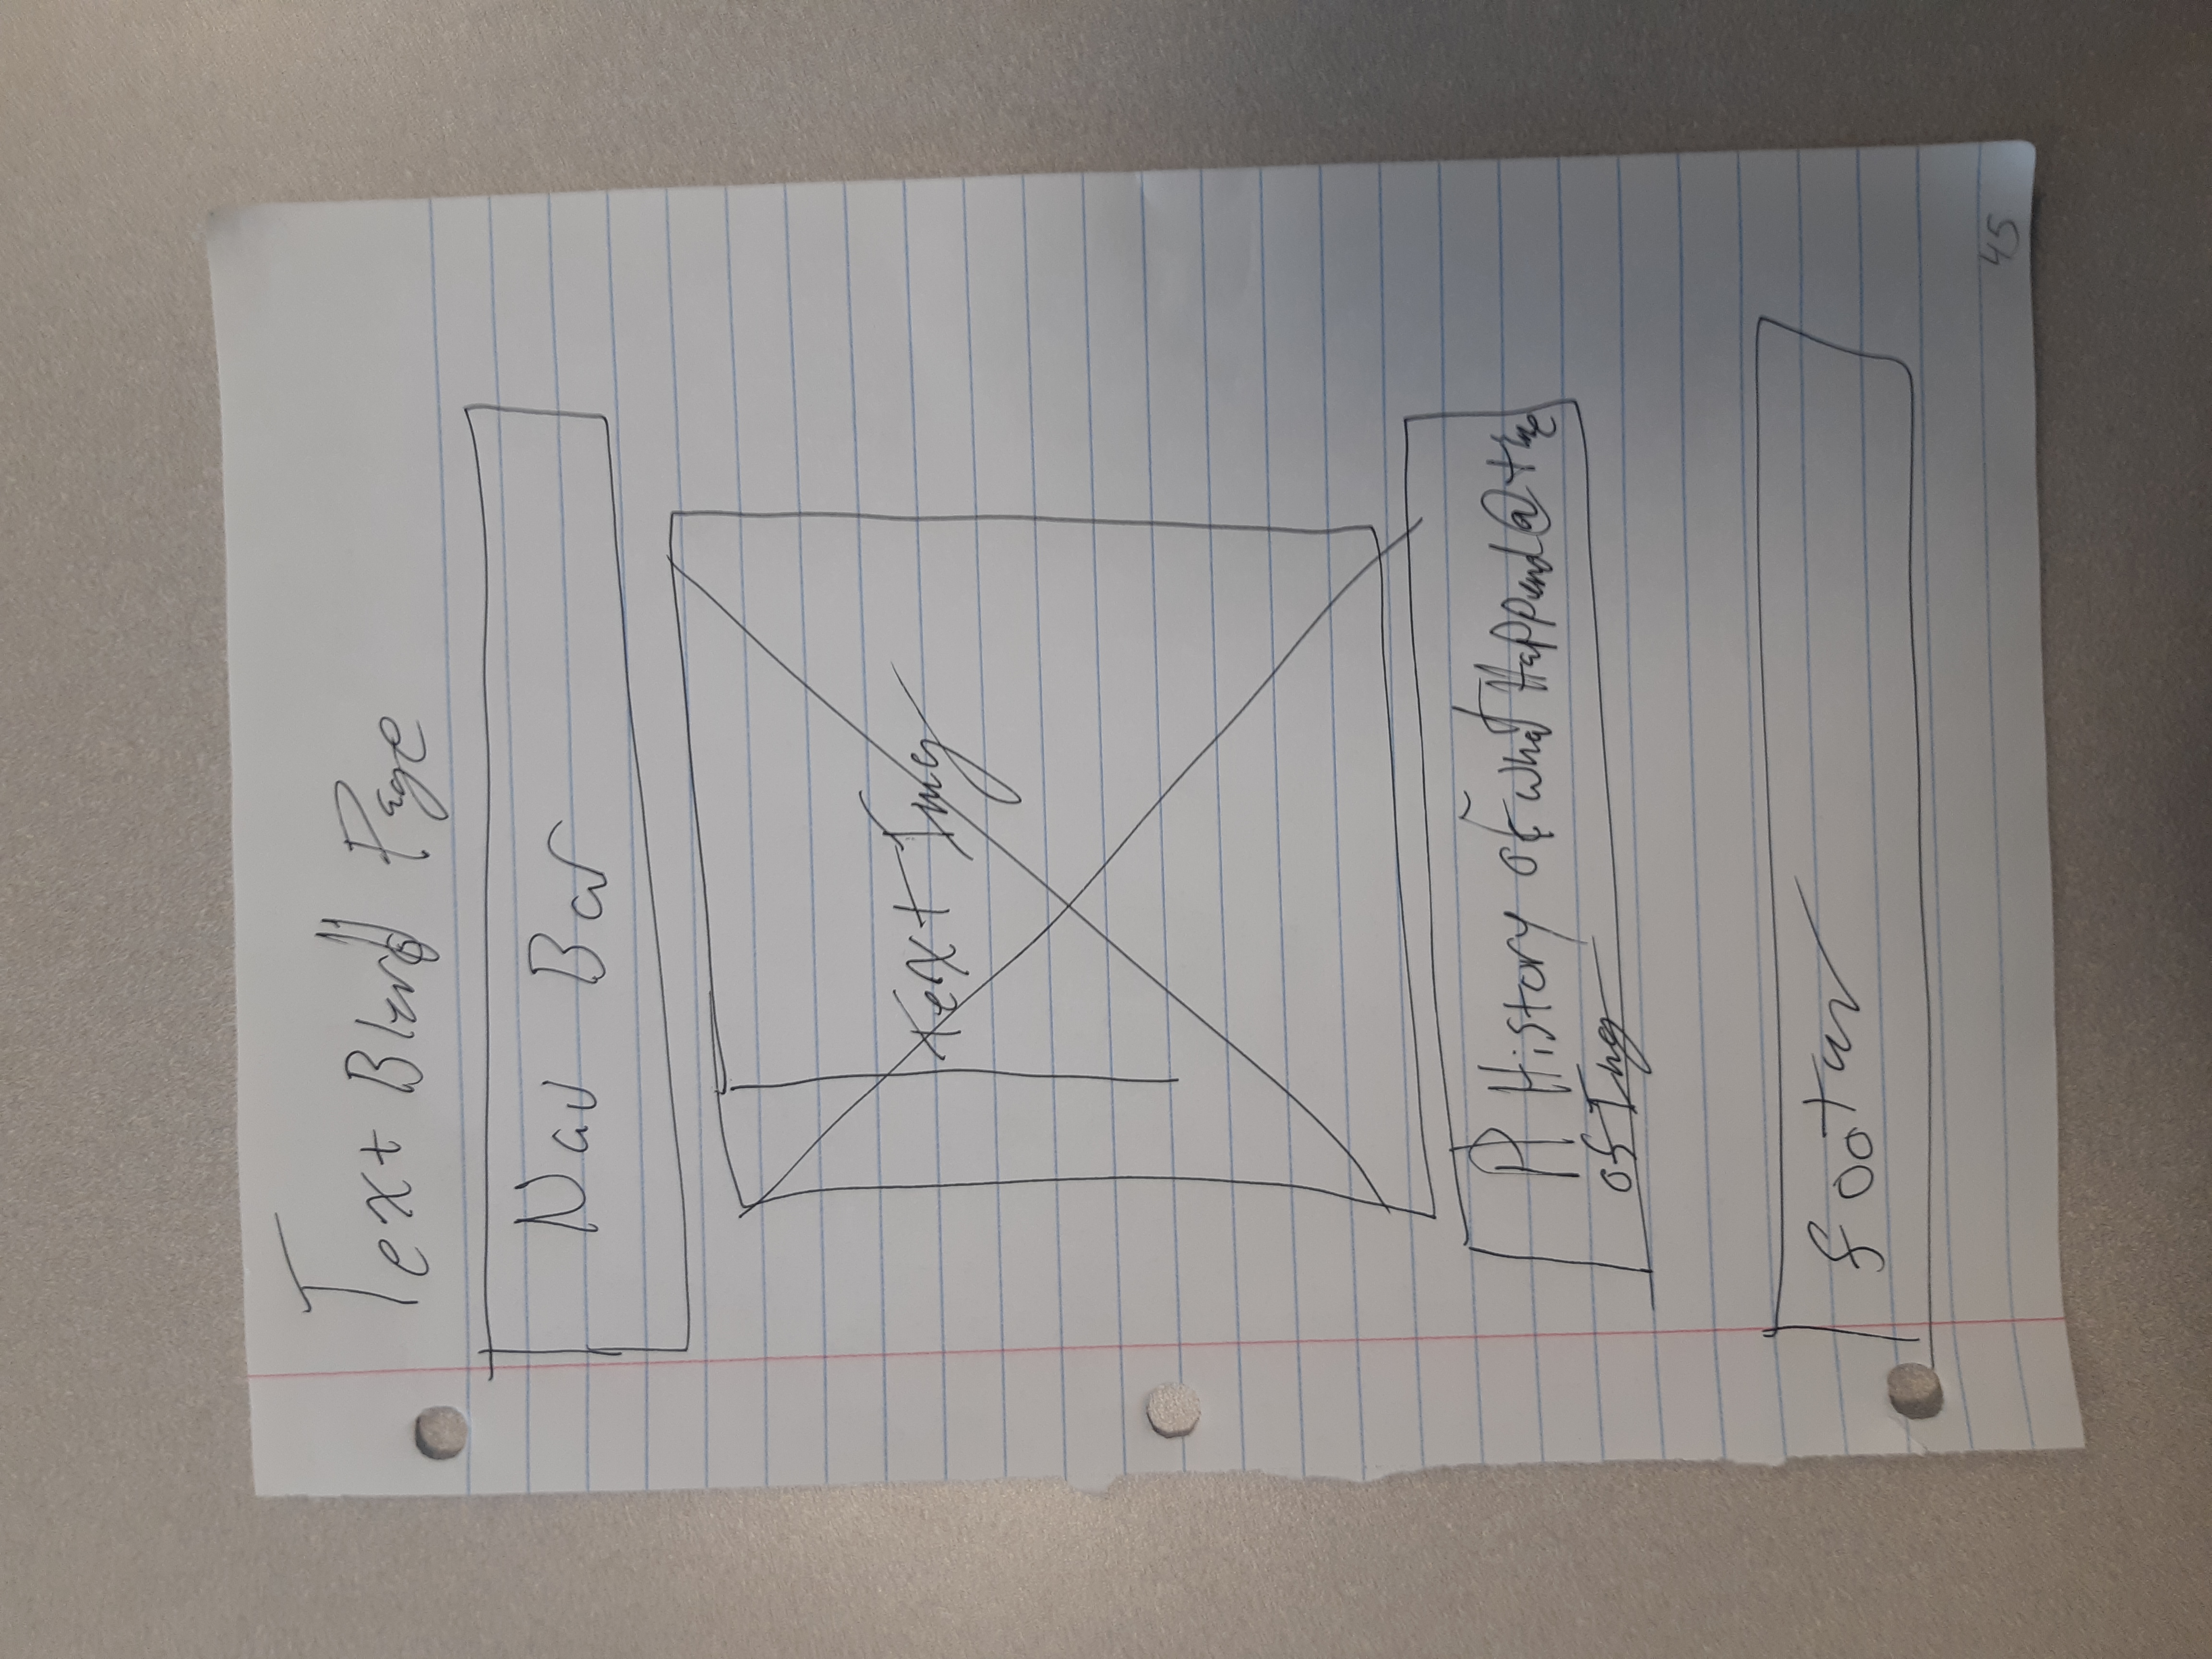 Text Blend Page
Nav Bar
Text Img
A History of what Happend @ time
of Img
footer
45